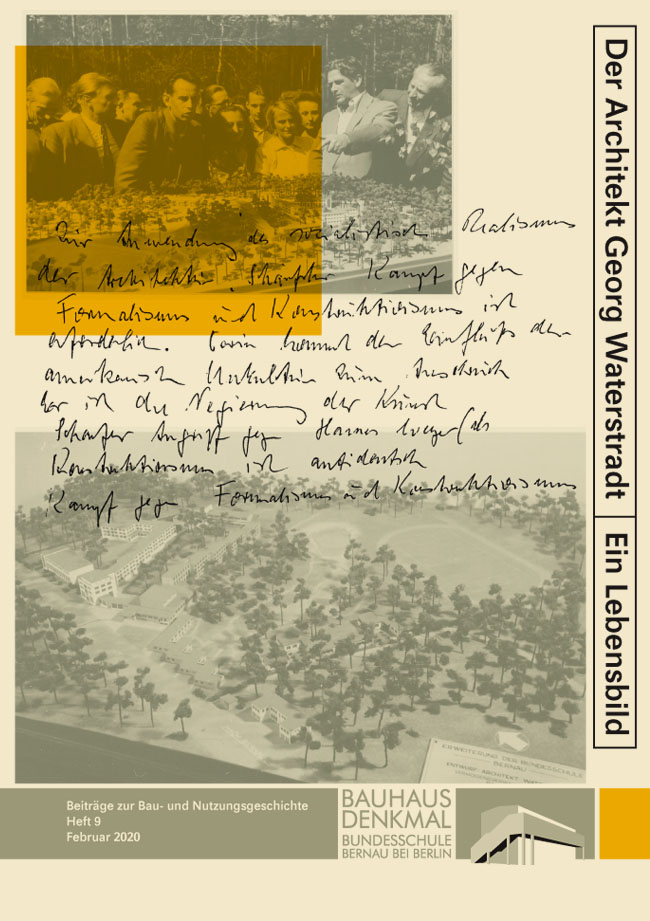 Der Architekt Georg Waterstradt
Ein Lebensbild
Zur Anwendung des sozialistisch Realismus
der Architektur. Scharfer Kampf gegen
Formalismus und Konstruktivismus ist
erforderlich. Darin kommt der Einfluß der
amerikanisch Unkultur zum Ausdruck
Er ist die Negierung der Kunst
Scharfer Angriff geg Hannes Meyer (als
Konstruktivismus ist antideutsch
Kampf gegen Formalismus und Konstruktivismus
EINWEITERUNG DER BUNDESSCHULE
BERNAU
ENTWURF: ARCHITEKT
Beiträge zur Bau- und Nutzungsgeschichte
Heft 9
Februar 2020
BAUHAUS
DENKMAL
BUNDESSCHULE
BERNAU BEI BERLIN